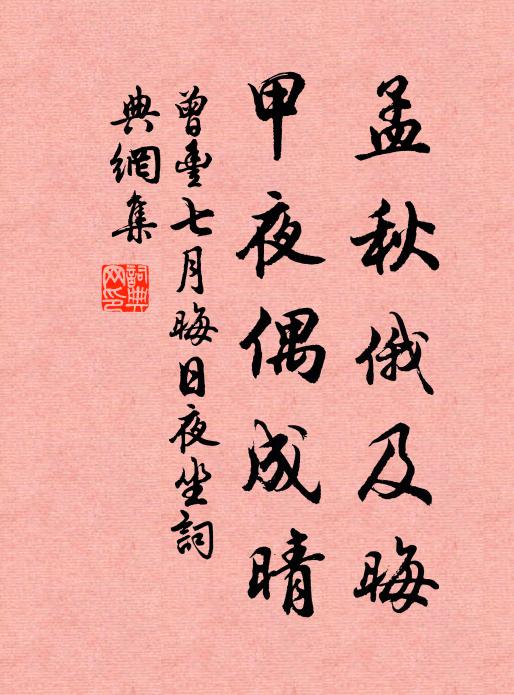 孟秋俄及晦
甲夜偶成晴
曾豊七月晦日夜坐詞
典網集
詞典网印